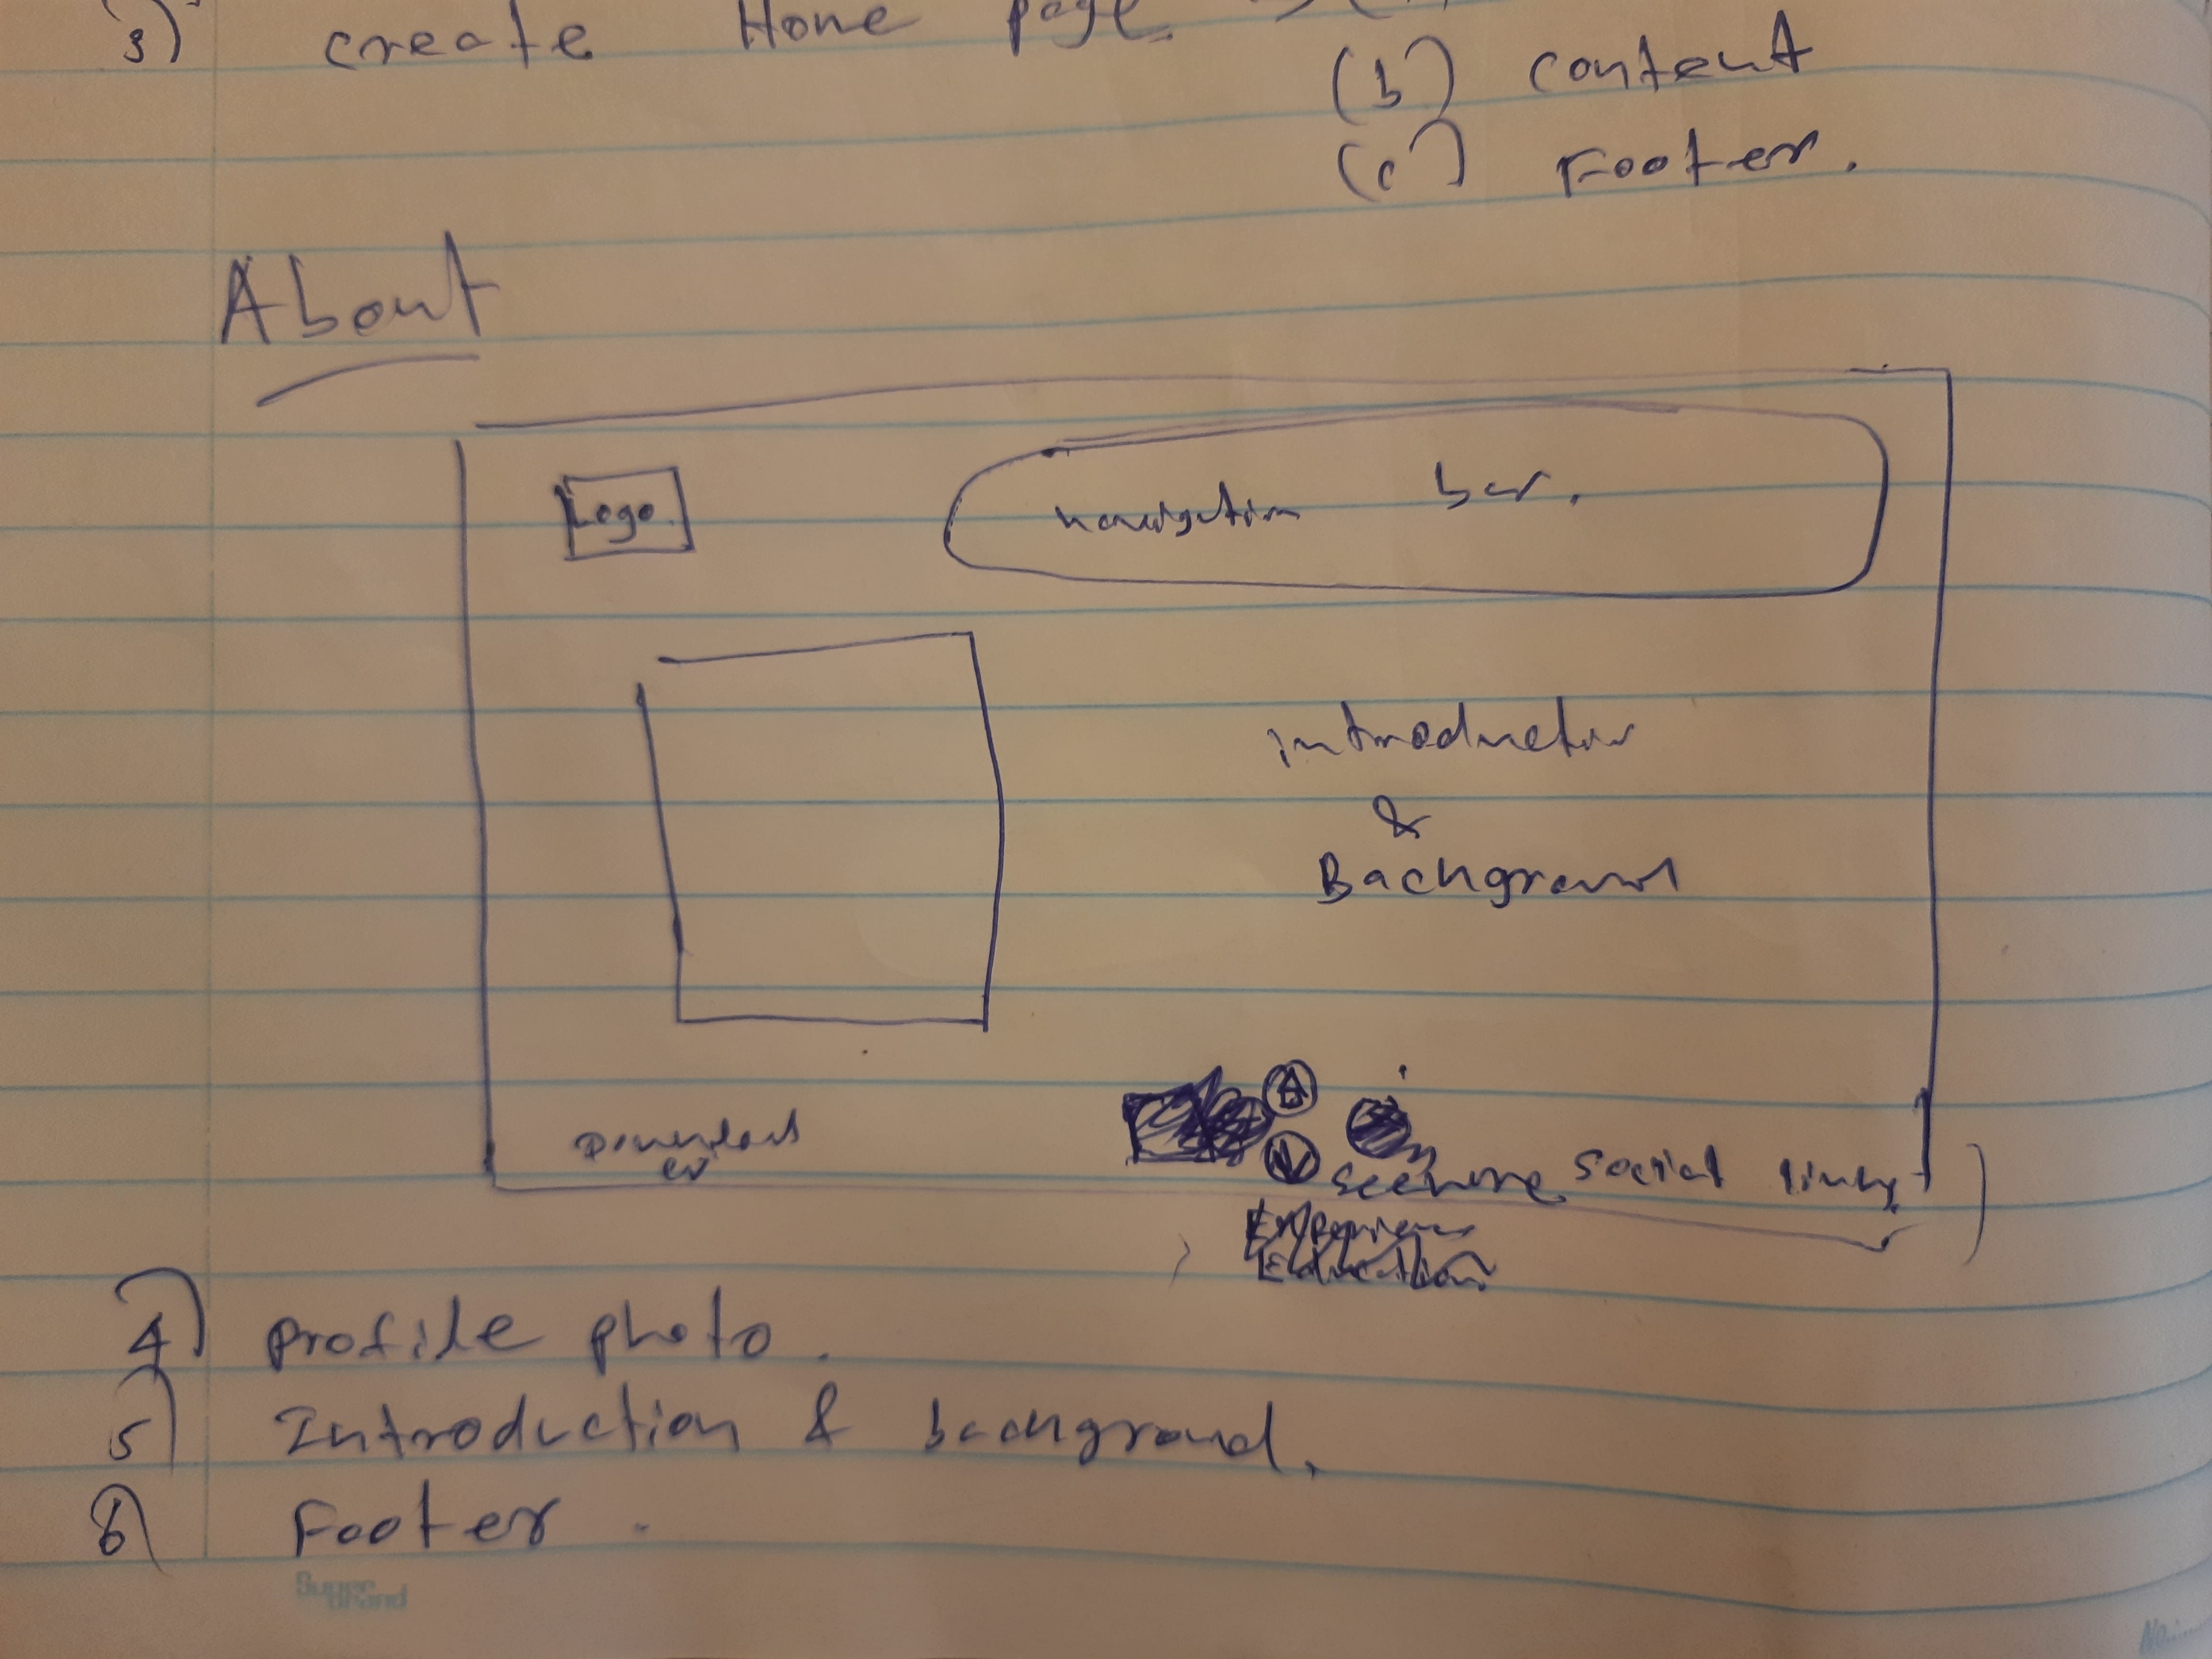 3) create Home page
(b) content
(c) Footer.
About
Logo.
navigation bar.
introduction
&
Background
Download
cv
see more social links
Experience
Education
4) profile photo.
5) Introduction & background.
6) Footer.
Super
Brand
No.